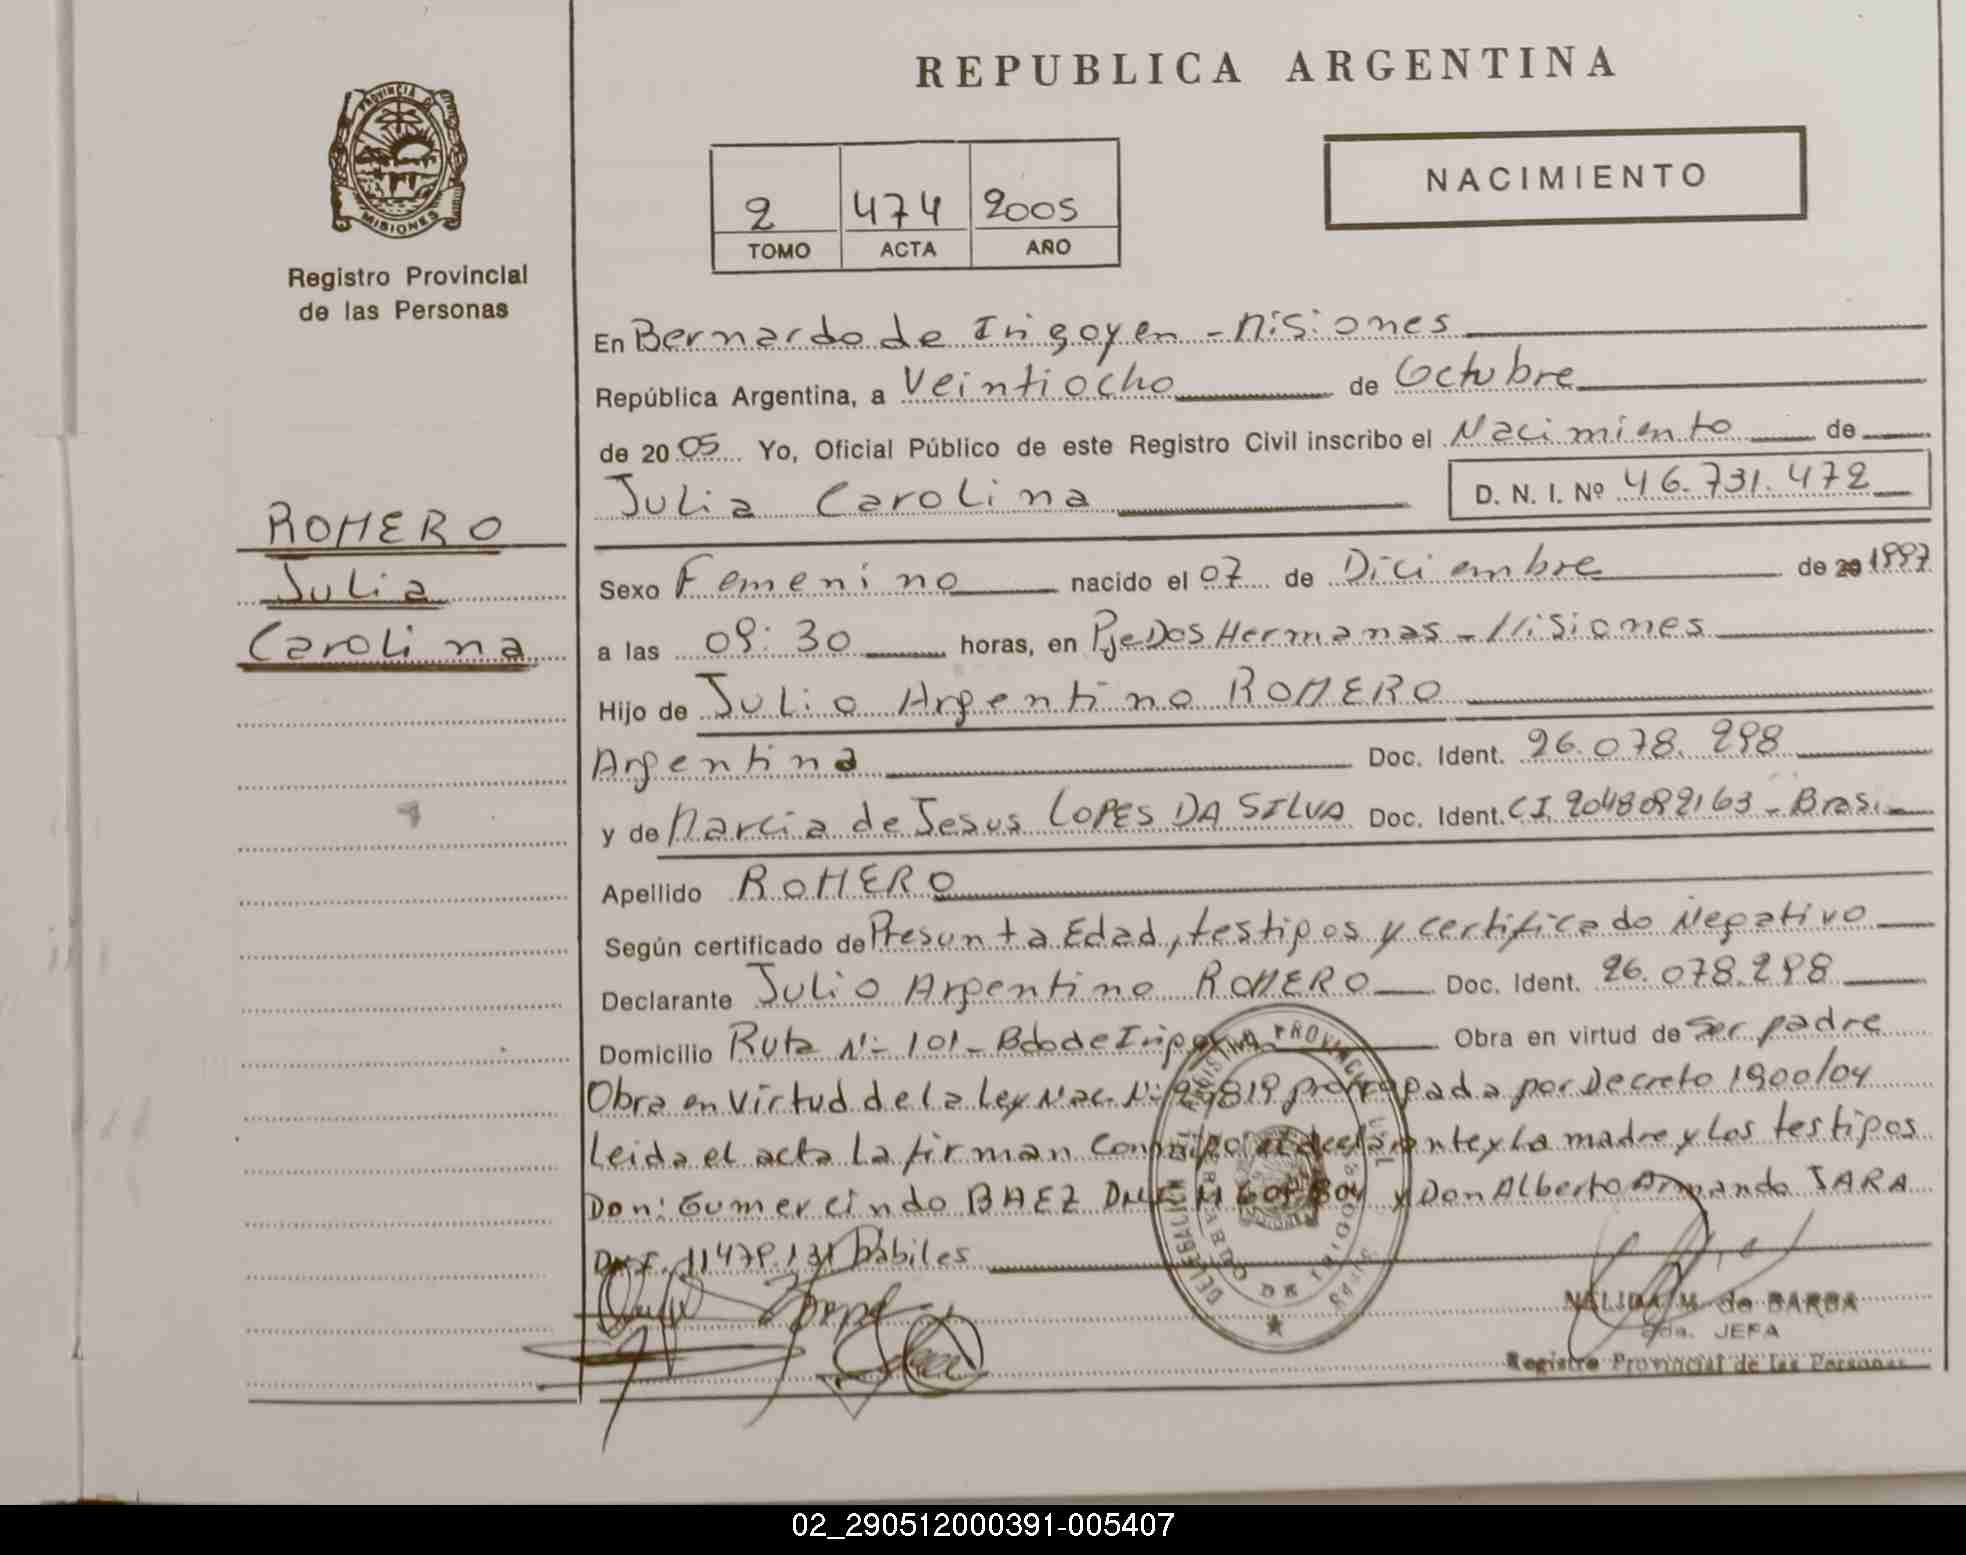 REPUBLICA ARGENTINA
PROVINCIA DE
MISIONES
Registro Provincial
de las Personas
2 474 2005
TOMO ACTA AÑO
NACIMIENTO
En Bernardo de Irigoyen - Misiones
República Argentina, a Veintiocho de Octubre
de 20 05 Yo, Oficial Público de este Registro Civil inscribo el Nacimiento de
Julia Carolina D. N. I. Nº 46.731.472
ROMERO
Julia
Carolina
Sexo Femenino nacido el 07 de Diciembre de 20 1997
a las 09:30 horas, en Pje Dos Hermanas - Misiones
Hijo de Julio Argentino ROMERO
Argentina Doc. Ident. 26.078.298
y de Marcia de Jesus LOPES DA SILVA Doc. Ident. CI 2048092163 - Bras.
Apellido ROMERO
Según certificado de Presunta Edad, testigos y certificado Negativo
Declarante Julio Argentino ROMERO Doc. Ident. 26.078.298
Domicilio Ruta Nº 101 - Bdo de Irigoyen Obra en virtud de Ser padre
Obra en Virtud de la Ley Nac. Nº 25819 prorrogada por Decreto 1900/04
Leida el acta La firman Conmigo el declarante y La madre y Los testigos
Don: Gumercindo BAEZ y Don Alberto Armando JARA
11479.131 habiles
NELIDA M. de BARBA
JEFA
Registro Provincial de las Personas
02_290512000391-005407